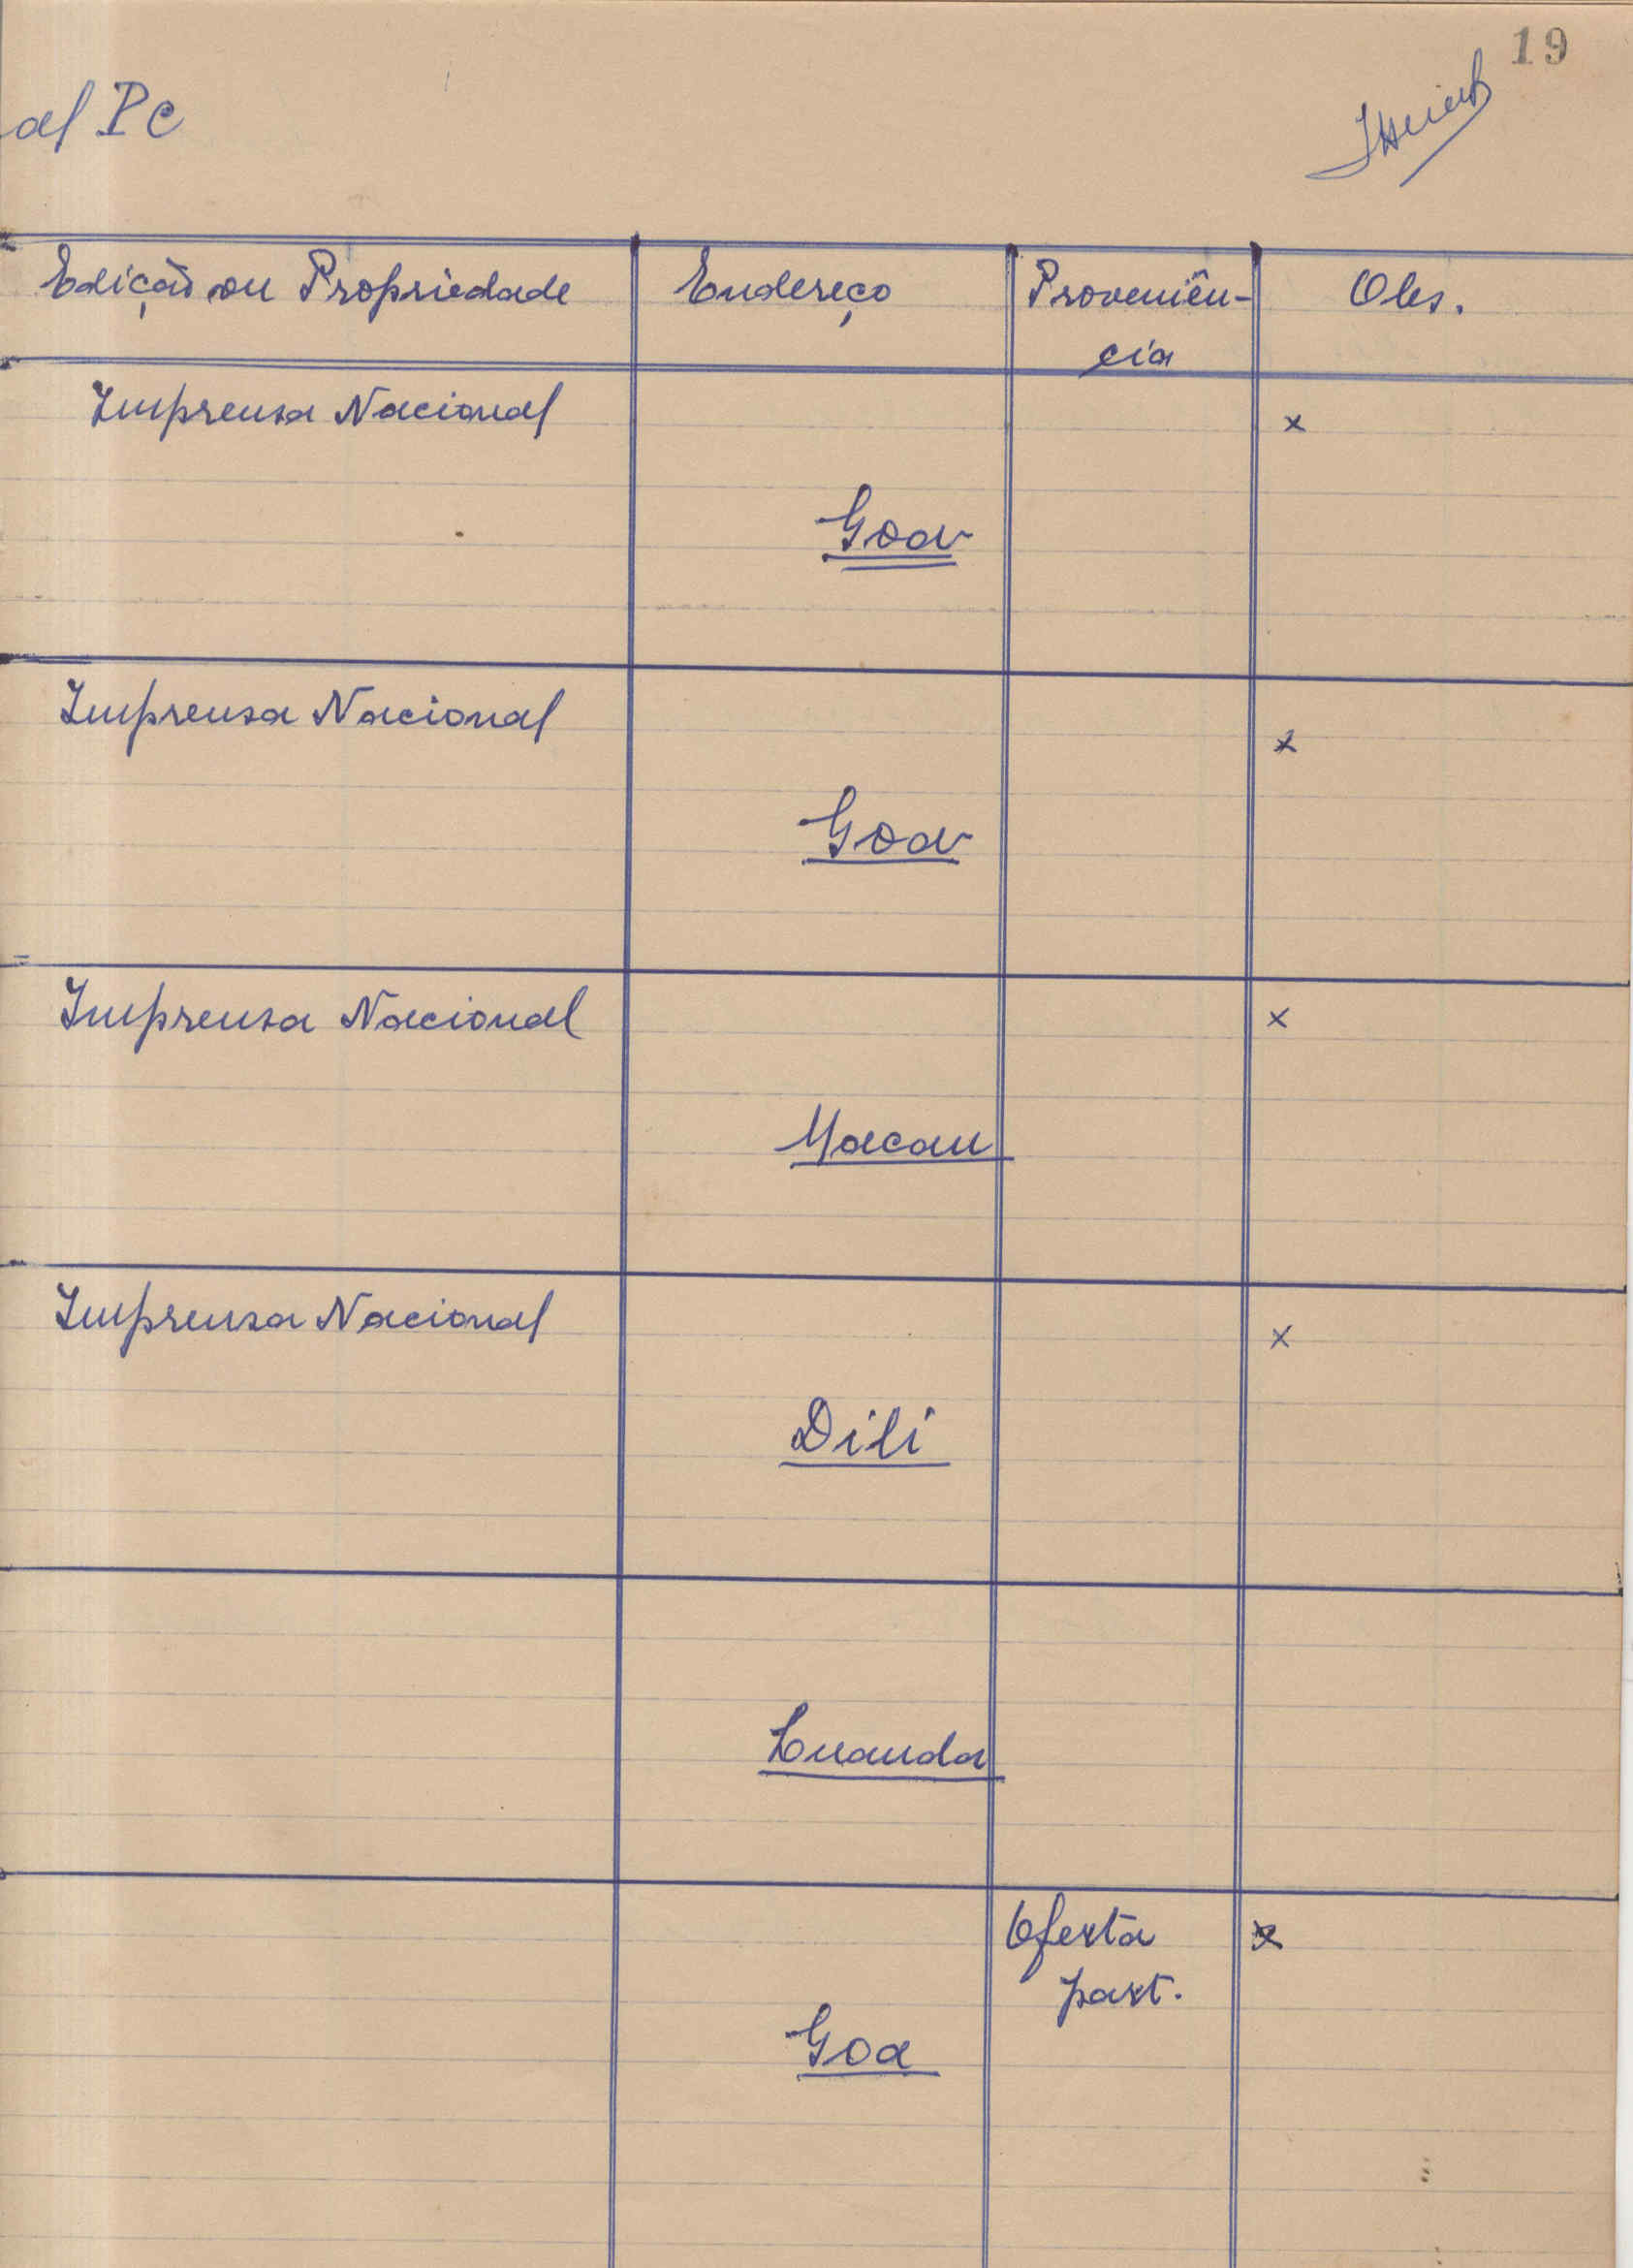 19
al Pc
Edição ou Propriedade Endereço Proveniên-
cia Obs.
Imprensa Nacional x
Goa
Imprensa Nacional x
Goa
Imprensa Nacional x
Macau
Imprensa Nacional x
Dili
Luanda
Oferta x
part.
Goa